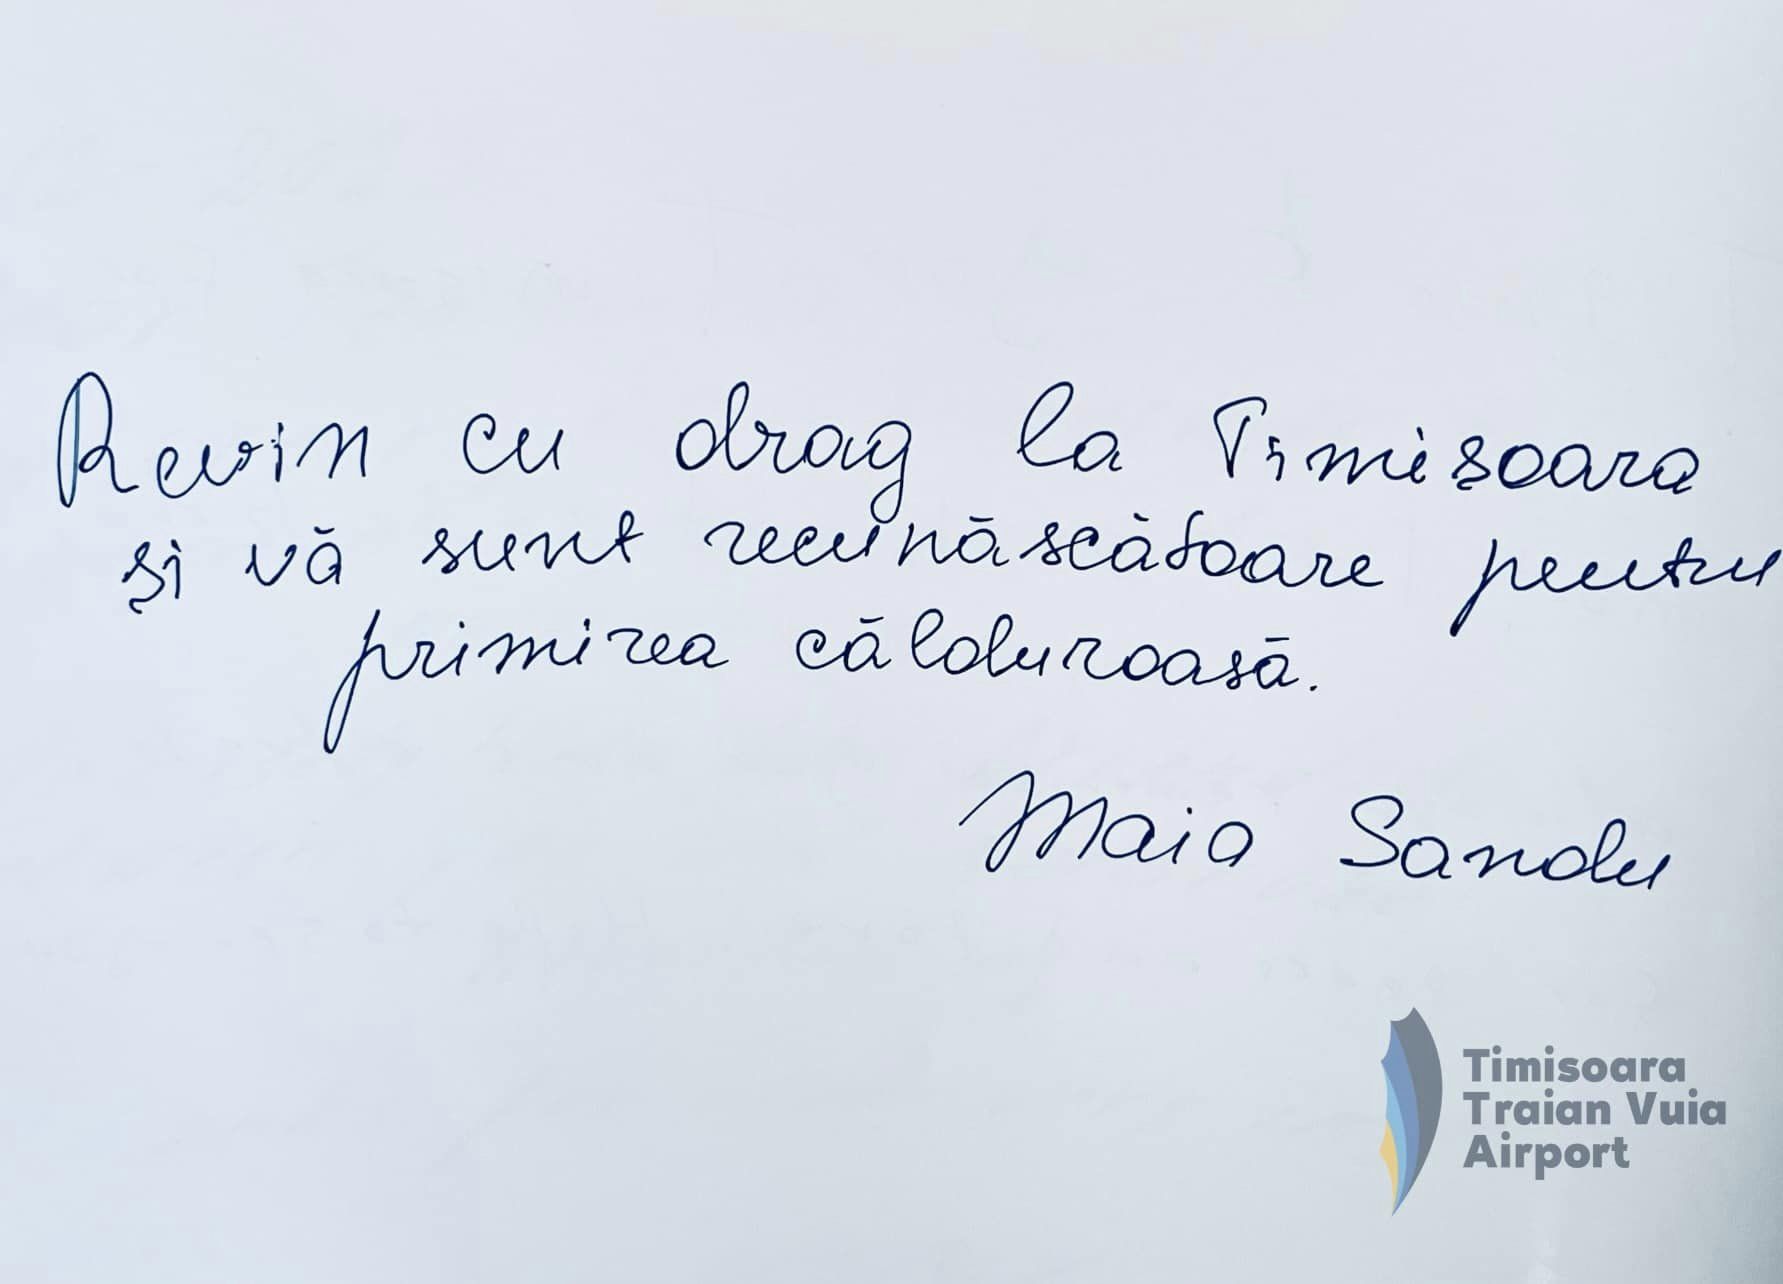 Revin cu drag la Timișoara
și vă sunt recunăscătoare pentru
primirea călduroasă.
Maia Sandu
Timisoara
Traian Vuia
Airport